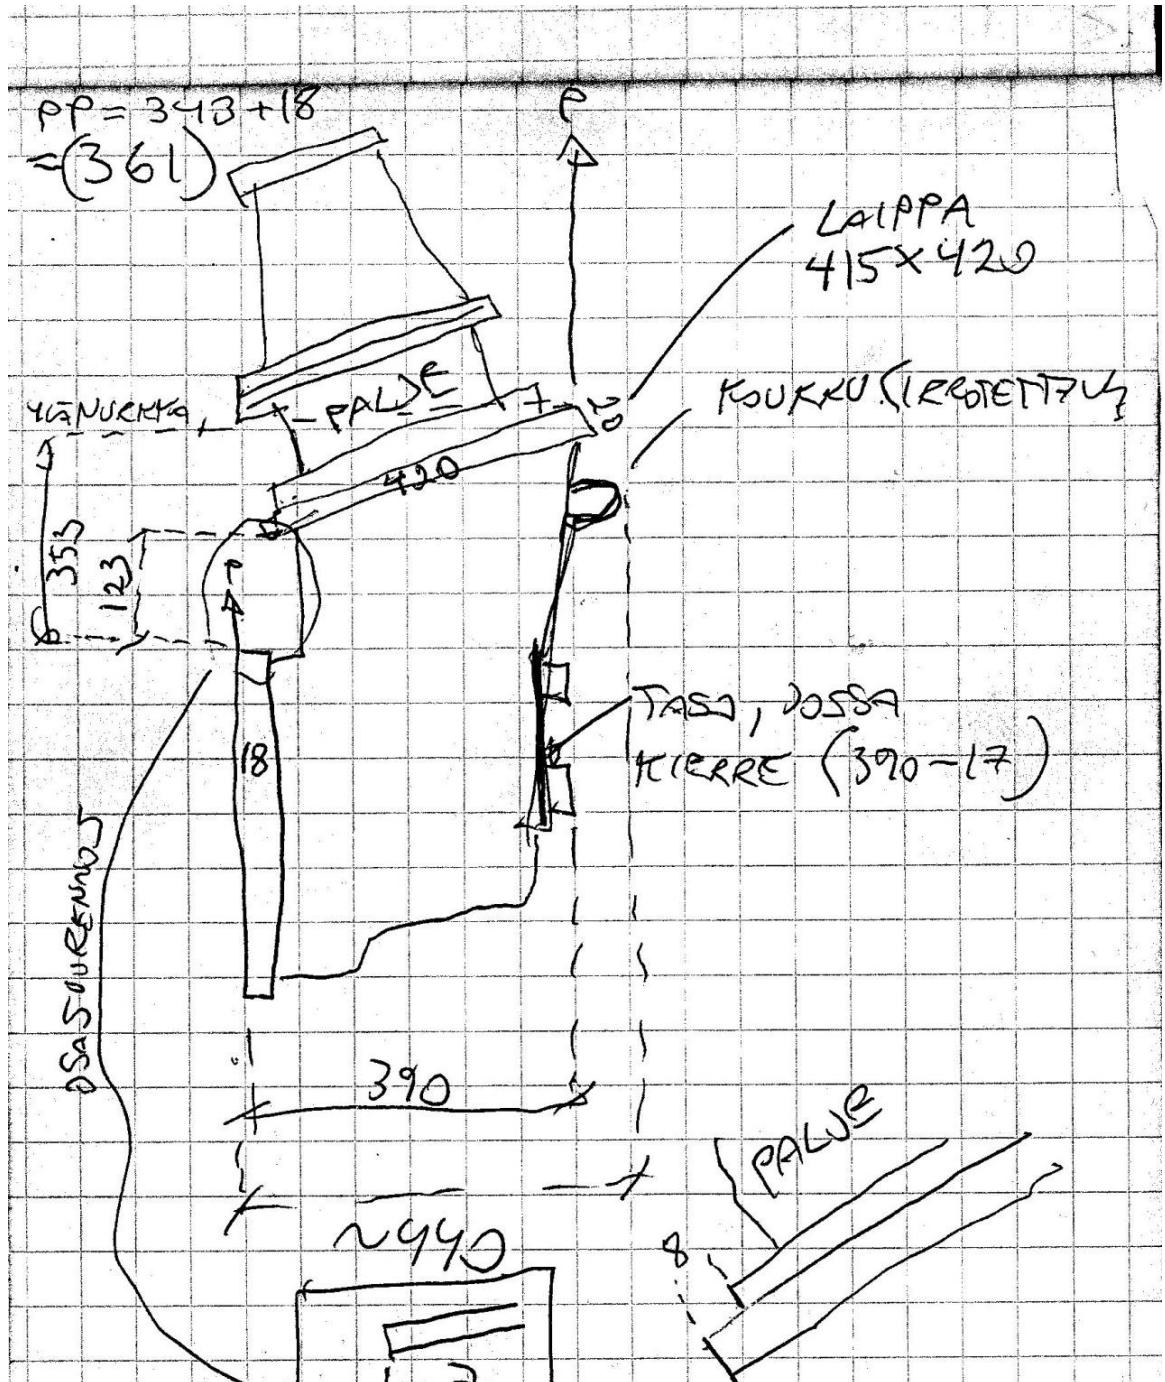 PP = 343+18
=(361)
P
LAIPPA
415×420
YLÄNURKKA
PALJE
7
20
KOUKKU (IRROTETTAVA)
420
353
123
P
TASO, JOSSA
KIERRE (390-17)
18
OSASUURENNOS
390
~440
PALJE
8